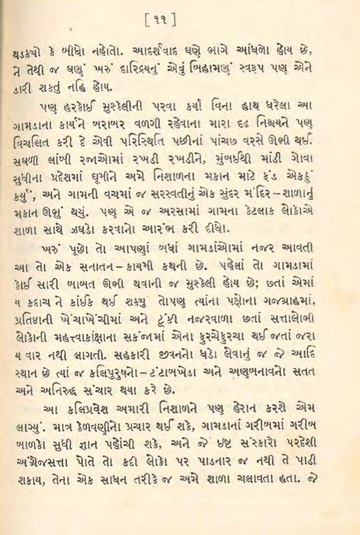 [ ૧૧ ]
થડકયો કે બીધો નહોતો. આદર્શવાદ ઘણે ભાગે આંધળો હોય છે,
ને તેથી જ ઘણું ખરું દારિદ્રયનું એવું બિહામણું સ્વરૂપ પણ એને
ડારી શકતું નહિ હોય.
પણ હરકોઈ મુશ્કેલીની પરવા કર્યા વિના હાથ ધરેલા આ
ગામડાના કાર્યને બરાબર વળગી રહેવાના મારા દૃઢ નિશ્ચયને પણ
વિચલિત કરી દે એવી પરિસ્થિતિ પછીનાં પાંચછ વરસે ઊભી થઈ.
સઘળી લાંબી રજાઓમાં રખડી રખડીને, મુંબઈથી માંડી ગોવા
સુધીના પ્રદેશમાં ઘૂમીને અમે નિશાળના મકાન માટે ફંડ એકઠું
કર્યું, અને ગામની વચમાં જ સરસ્વતીનું એક સુંદર મંદિર–શાળાનું
મકાન ઊભું થયું. પણ એ જ અરસામાં ગામના કેટલાક લોકોએ
શાળા સાથે ઝઘડો કરવાનો આરંભ કરી દીધો.
ખરું પૂછો તો આપણાં બધાં ગામડાંઓમાં નજર આવતી
આ તો એક સનાતન–કાયમી કથની છે. પહેલાં તો ગામડામાં
કોઈ સારી બાબત ઊભી થવાની જ મુશ્કેલી હોય છે; છતાં એમાં
ય કદાચ ને કાંઈક થઈ શકયું તોપણ ત્યાંના પક્ષોના ગજગ્રાહમાં,
પ્રતિષ્ઠાની ખેંચાખેંચીમાં અને ટૂંકી નજરવાળા છતાં સત્તાલોભી
લોકોની મહત્ત્વાકાંક્ષાના સકંજામાં એના કુરચેકુરચા થઈ જતાં જરા
ય વાર નથી લાગતી. સહકારી જીવનનો ધડો લેવાનું જ જે આદિ
સ્થાન છે ત્યાં જ કલિપુરુષનો–ટંટાબખેડા અને અણબનાવનો સતત
અને અનિરુદ્ધ સંચાર થયા કરે છે.
આ કલિપ્રવેશ અમારી નિશાળને પણ હેરાન કરશે એમ
લાગ્યું. માત્ર કેળવણીનો પ્રચાર થઈ શકે, ગામડાનાં ગરીબમાં ગરીબ
બાળકો સુધી જ્ઞાન પહોંચી શકે, અને જે ઇષ્ટ સંસ્કારો પરદેશી
અંગ્રેજસત્તા પોતે તો કદી લોકો પર પાડનાર જ નથી તે પાડી
શકાય, તેના એક સાધન તરીકે જ અમે શાળા ચલાવતા હતા. જે